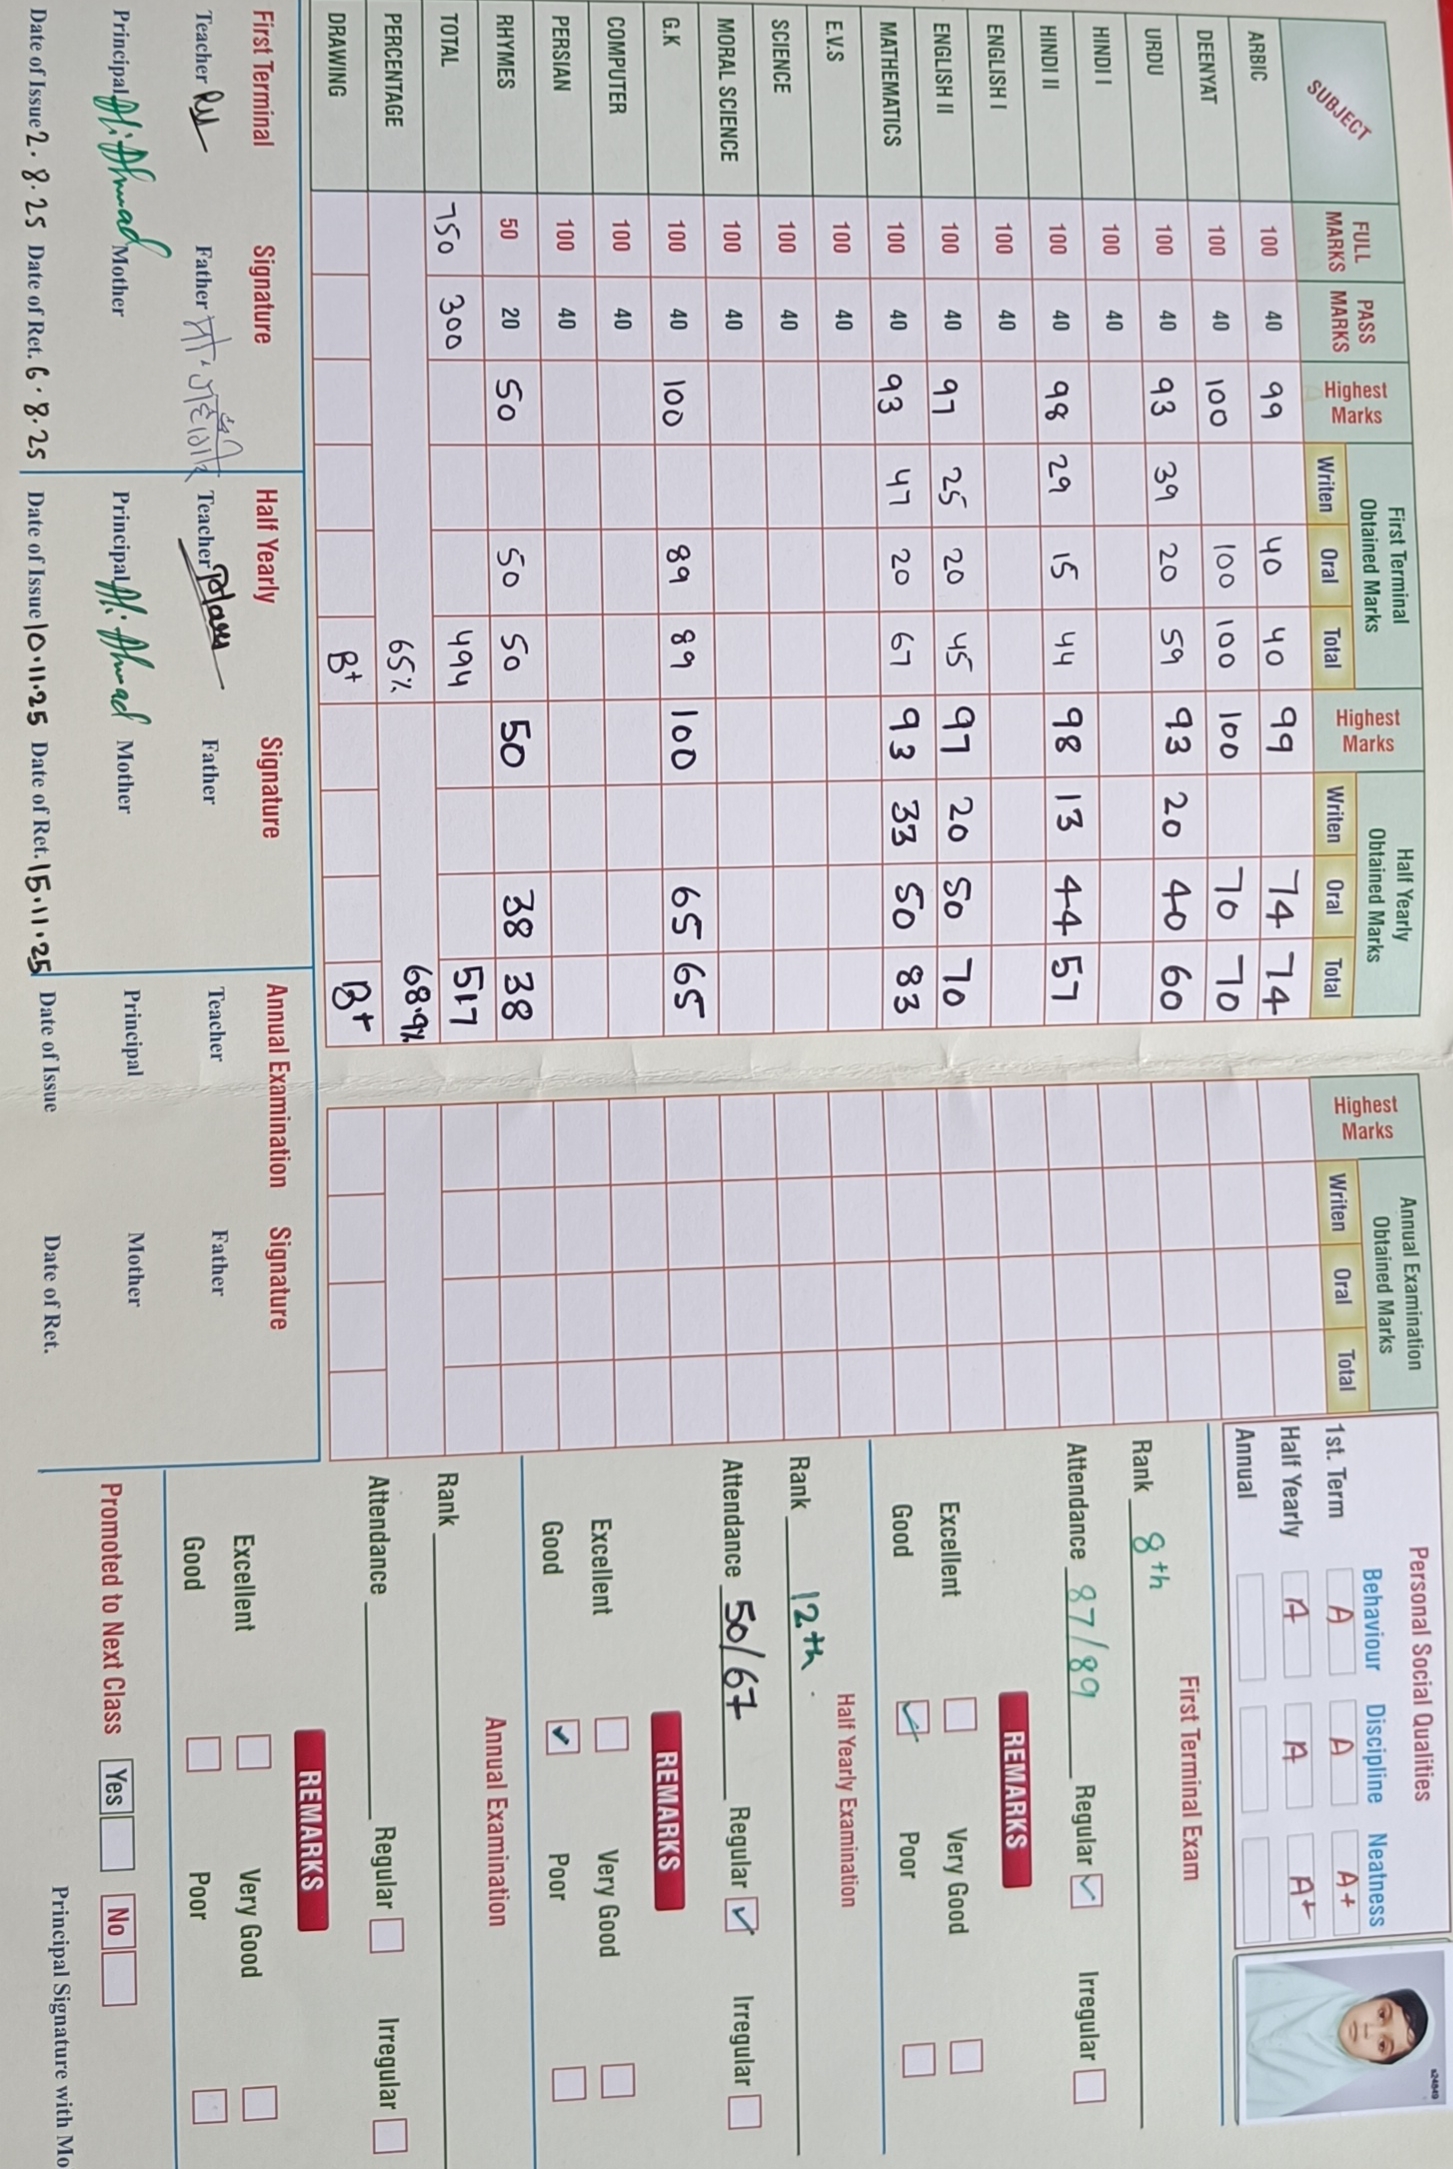 SUBJECT FULL MARKS PASS MARKS Highest Marks First Terminal Obtained Marks Writen Oral Total Highest Marks Half Yearly Obtained Marks Writen Oral Total Highest Marks Annual Examination Obtained Marks Writen Oral Total
ARBIC 100 40 99 40 40 99 74 74
DEENYAT 100 40 100 100 100 100 70 70
URDU 100 40 93 39 20 59 93 20 40 60
HINDI I 100 40
HINDI II 100 40 98 29 15 44 98 13 44 57
ENGLISH I 100 40
ENGLISH II 100 40 97 25 20 45 97 20 50 70
MATHEMATICS 100 40 93 47 20 67 93 33 50 83
E.V.S 100 40
SCIENCE 100 40
MORAL SCIENCE 100 40
G.K 100 40 100 89 89 100 65 65
COMPUTER 100 40
PERSIAN 100 40
RHYMES 50 20 50 50 50 50 38 38
TOTAL 750 300 494 517
PERCENTAGE 65% 68.9%
DRAWING B+ B+
First Terminal Signature Half Yearly Signature Annual Examination Signature
Teacher Father Teacher Father Teacher Father
Principal Ali Ahmad Mother Principal Ali Ahmad Mother Principal Mother
Date of Issue 2.8.25 Date of Ret. 6.8.25 Date of Issue 10.11.25 Date of Ret. 15.11.25 Date of Issue Date of Ret.
Personal Social Qualities
Behaviour Discipline Neatness
1st. Term A A A+
Half Yearly A A A+
Annual
First Terminal Exam
Rank 8th
Attendance 87/89 Regular Irregular
REMARKS
Excellent Very Good
Good Poor
Half Yearly Examination
Rank 12th.
Attendance 50/67 Regular Irregular
REMARKS
Excellent Very Good
Good Poor
Annual Examination
Rank
Attendance Regular Irregular
REMARKS
Excellent Very Good
Good Poor
Promoted to Next Class Yes No
Principal Signature with Mo